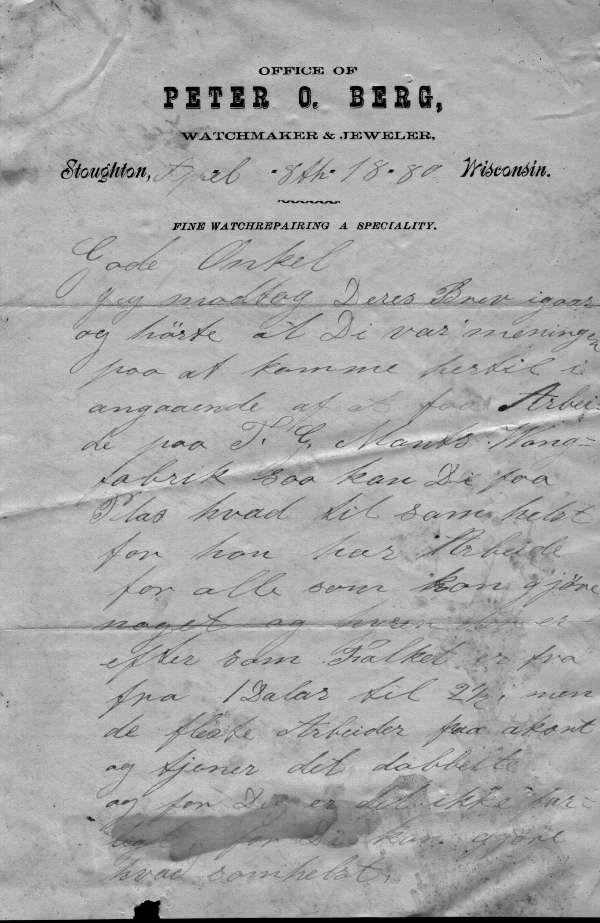 OFFICE OF
PETER O. BERG,
WATCHMAKER & JEWELER,
Stoughton, April 8th 1880 Wisconsin.
FINE WATCHREPAIRING A SPECIALITY.
Gode Onkel
Jeg modtog Deres Brev igaar
og hörte at Di var meningen
paa at komme hertil i
angaaende af at faa Arbei-
de paa T. G. Mandts Vong-
fabrik saa kan Di faa
Plas hvad til somhelst
for han har Arbeide
for alle som kan gjöre
noget og er
efter som Folket er fra
fra 1 Dalar til 2½; men
de fleste Arbeider paa akort
og tjener det dobbelte
og for Di er det ikke far-
for Di kan gjöre
hvad somhelst.